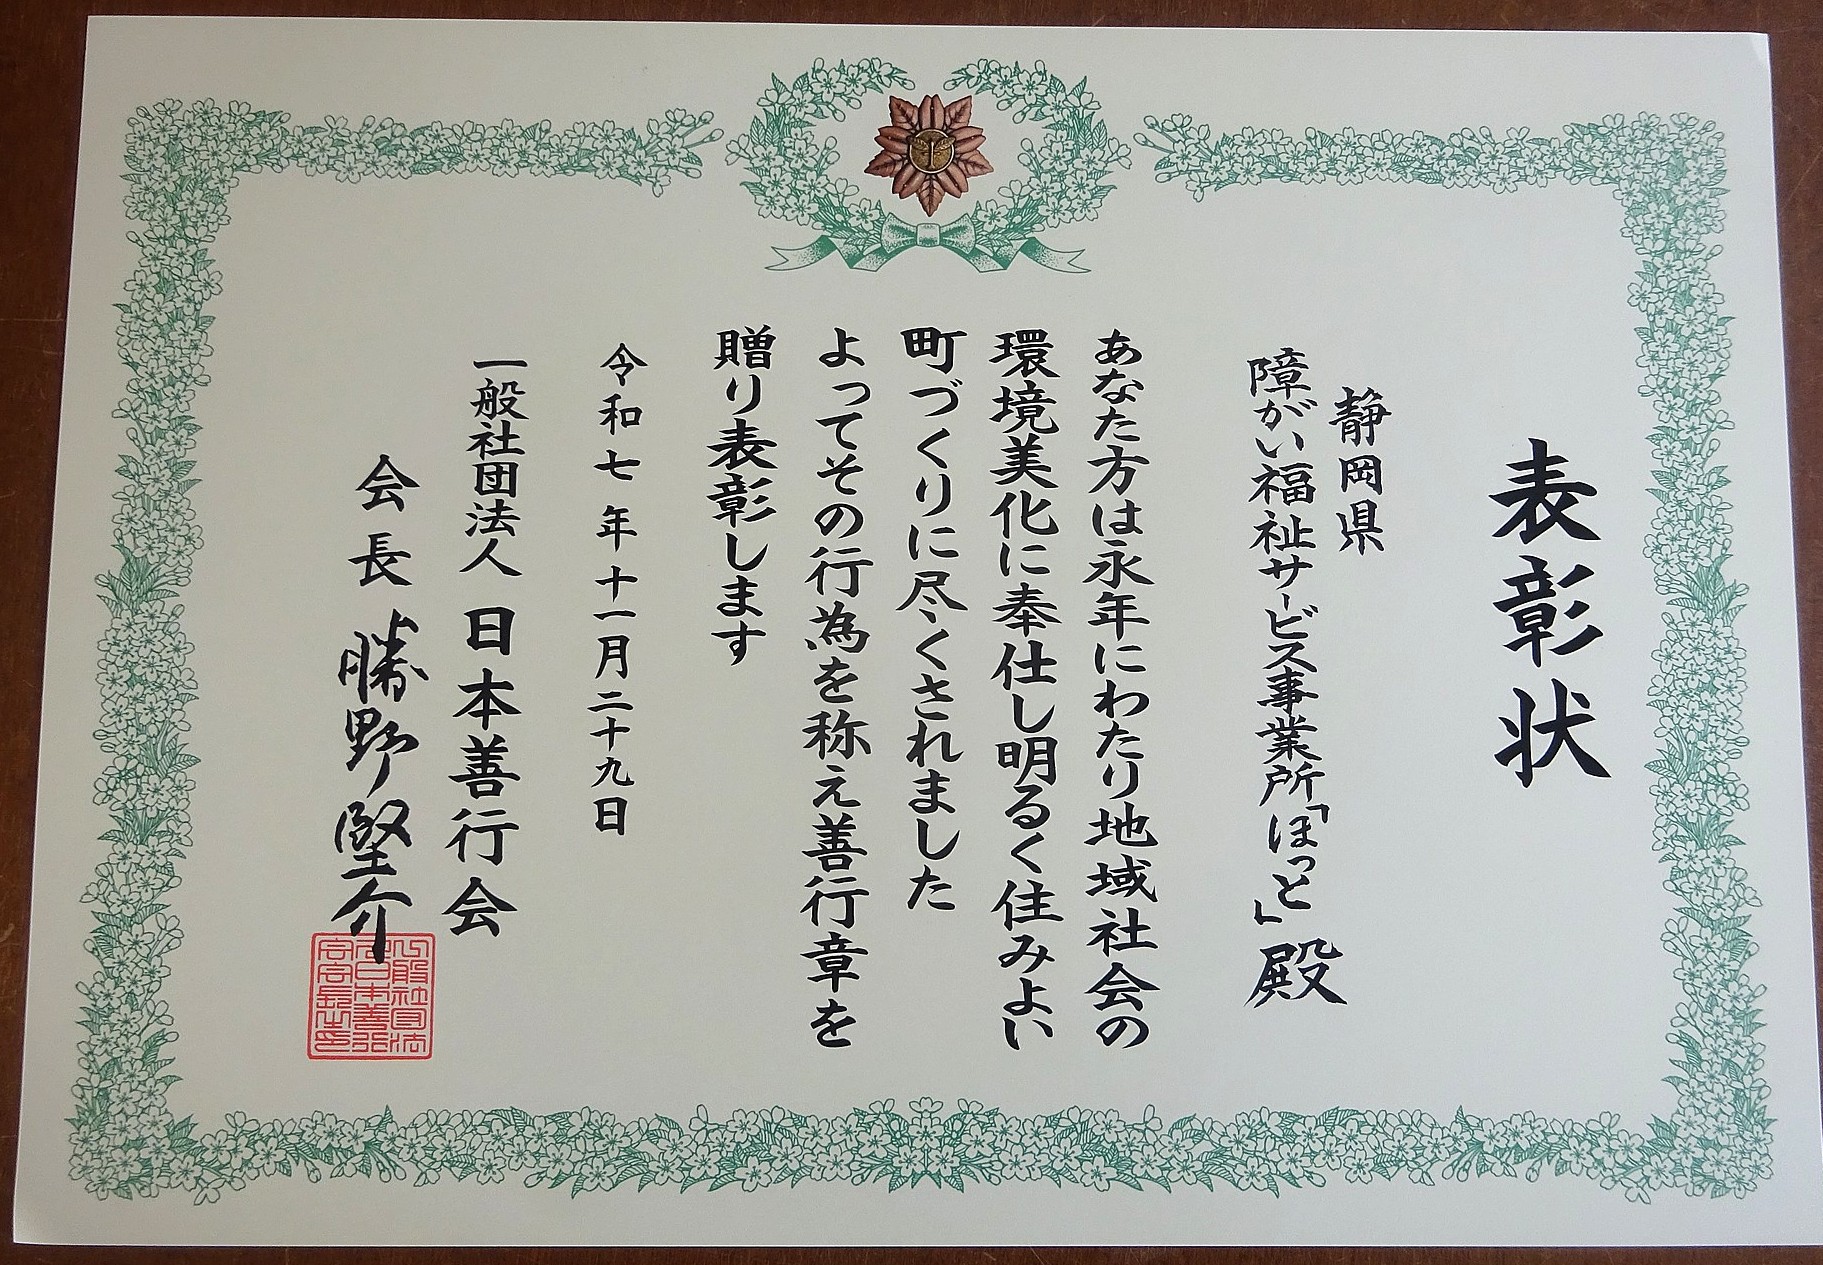 表彰状
静岡県
障がい福祉サービス事業所「ほっと」殿
あなた方は永年にわたり地域社会の
環境美化に奉仕し明るく住みよい
町づくりに尽くされました
よってその行為を称え善行章を
贈り表彰します
令和七年十一月二十九日
一般社団法人 日本善行会
会長 勝野堅介